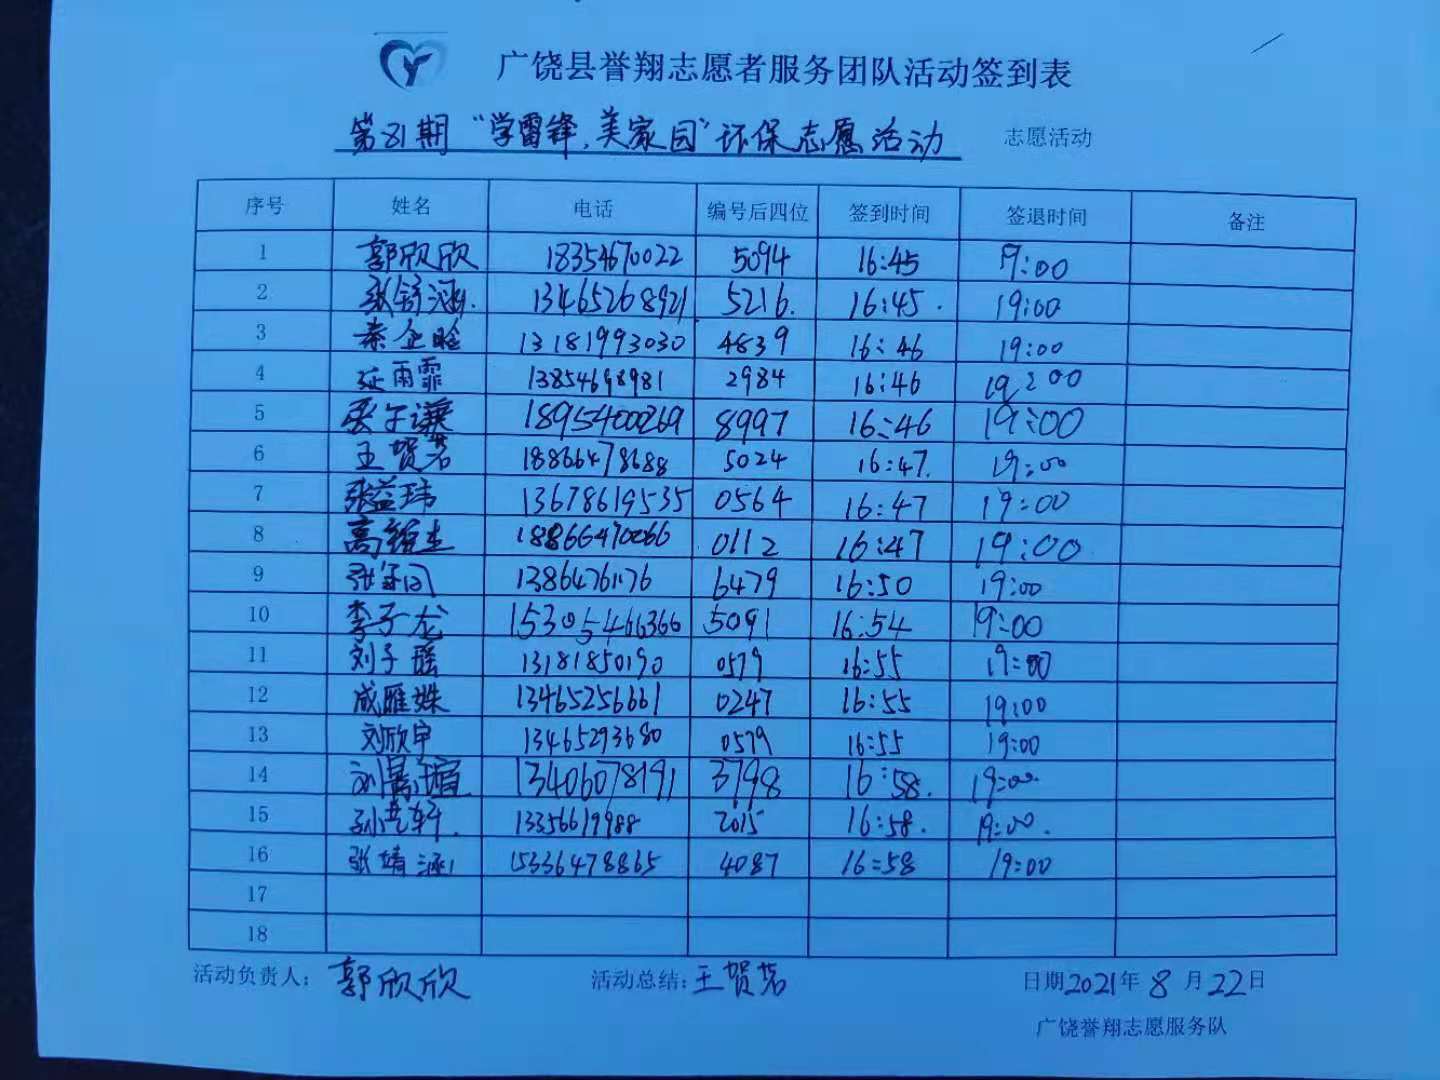 广饶县誉翔志愿者服务团队活动签到表
第81期“学雷锋,美家园”环保志愿活动 志愿活动
序号 姓名 电话 编号后四位 签到时间 签退时间 备注
1 郭欣欣 18354670022 5094 16:45 19:00
2 张舒涵. 13465268921 5216. 16:45. 19:00
3 秦企晗 13181993030 4839 16:46 19:00
4 延雨霏 13854698981 2984 16:46 19:00
5 18954000269 8997 16:46 19:00
6 王贺茗 18866478688 5024 16:47. 19:00
7 张益玮 13678619535 0564 16:47 19:00
8 高 18866470066 0112 16:47 19:00.
9 张 1386476176 6479 16:50 19:00
10 李子龙 15305466366 5091 16:54 19:00
11 刘子瑶 13181850190 0579 16:55 19:00
12 成雁姝 13465256661 0247 16:55 19:00
13 刘欣宇 13465293680 0579 16:55 19:00
14 刘 瑄 13406078191 3798 16:58. 19:00
15 孙艺轩. 13356619988 2015 16:58. 19:00.
16 张靖涵 15336478865 4087 16:58 19:00
17
18
活动负责人: 郭欣欣 活动总结: 王贺茗 日期2021年8月22日
广饶誉翔志愿服务队